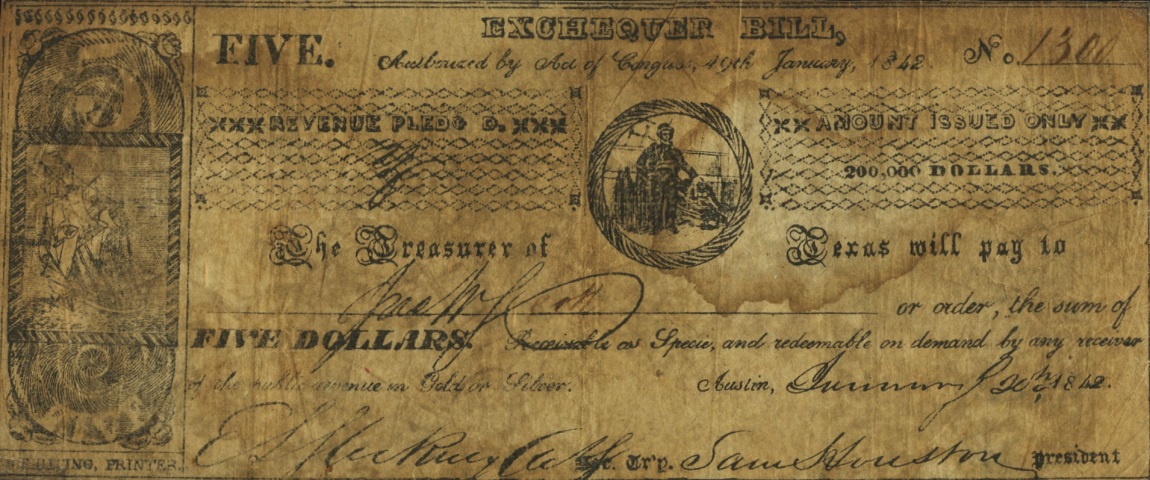 EXCHEQUER BILL,
FIVE.
Authorized by Act of Congress, 19th January, 1842. No. 1300
REVENUE PLEDG D.
AMOUNT ISSUED ONLY
200,000 DOLLARS.
The Treasurer of Texas will pay to
or order, the sum of
FIVE DOLLARS. Receivable as Specie, and redeemable on demand by any receiver
of the public revenue in Gold or Silver. Austin, January 20th, 1842.
Tr'y. Sam Houston President
PRINTER.